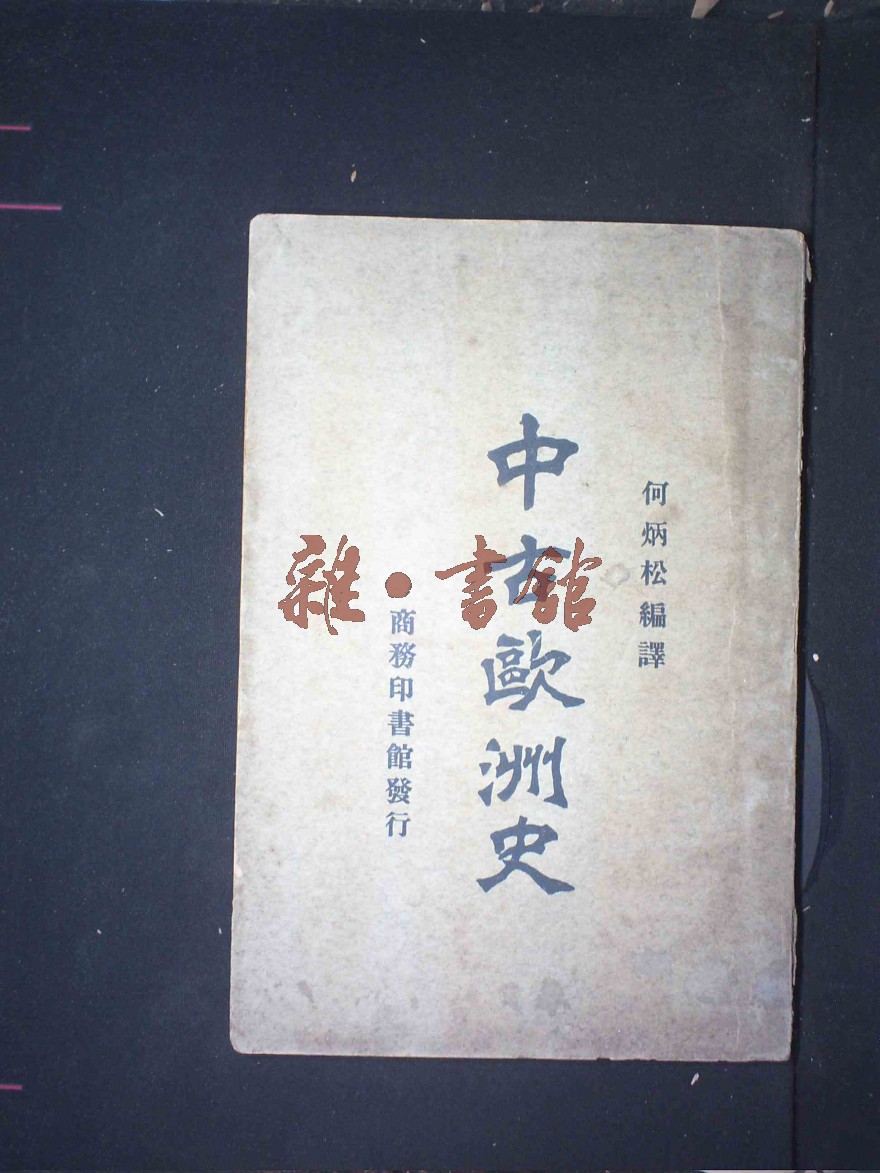 何炳松編譯
中古歐洲史
商務印書館發行
雜·書館